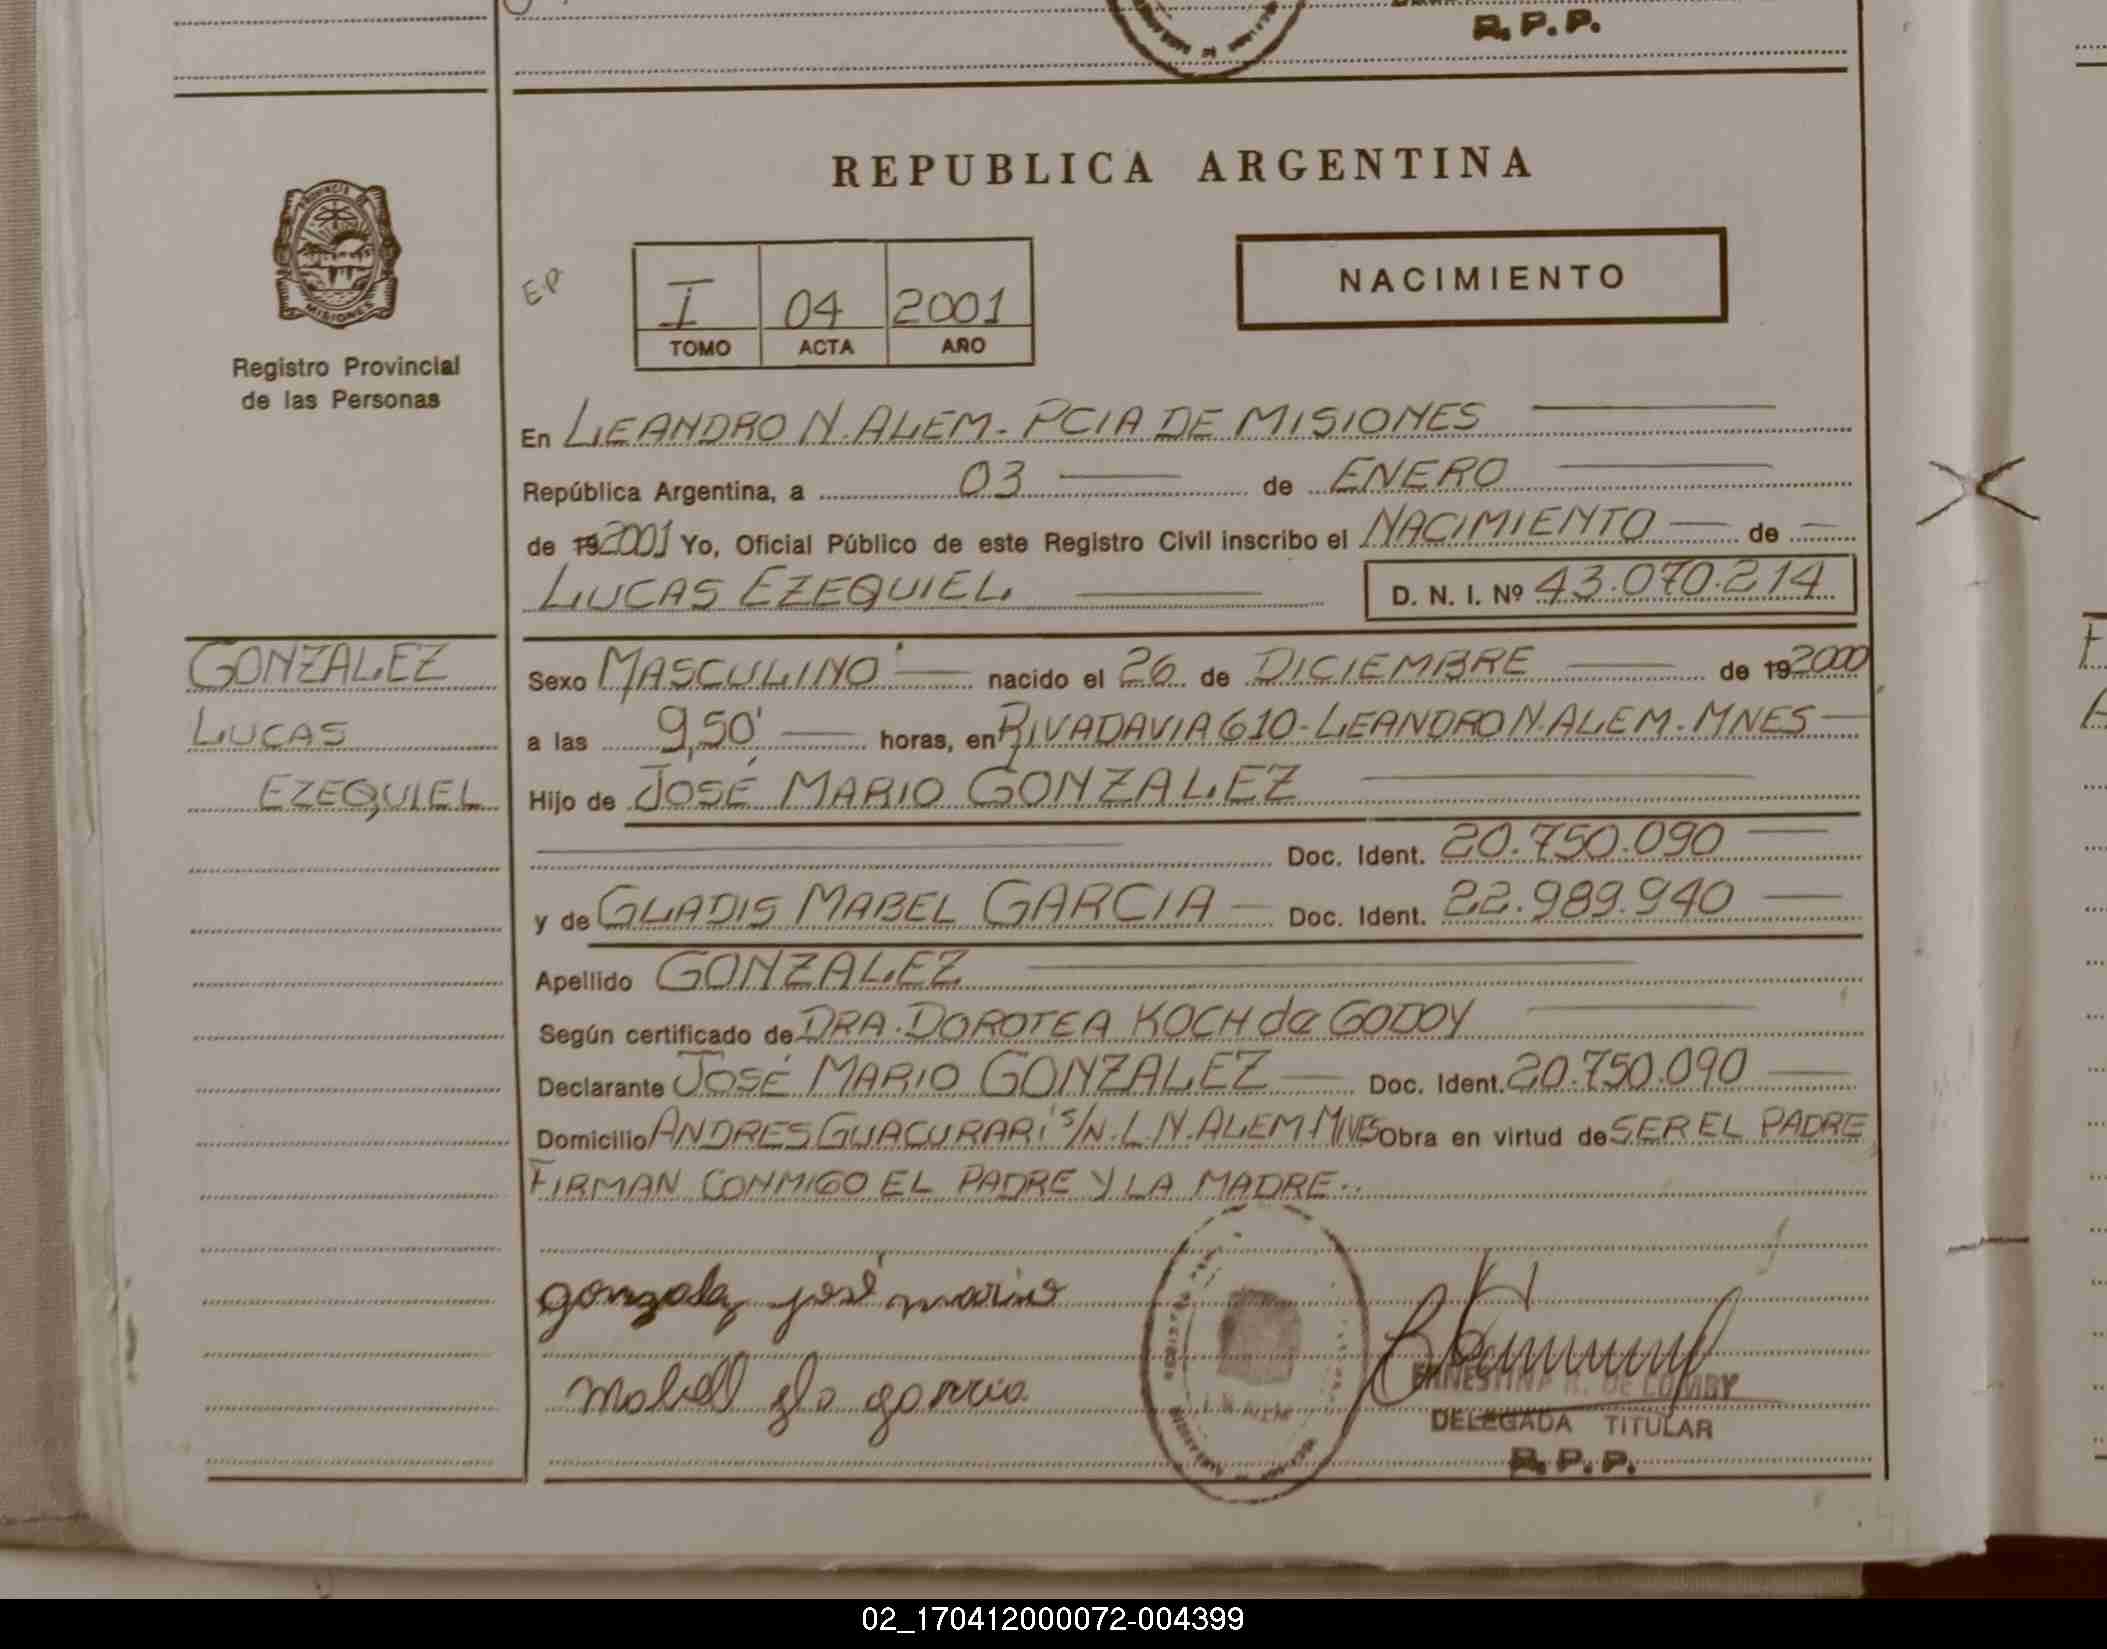 R. P. P.
REPUBLICA ARGENTINA
PROVINCIA DE
MISIONES
Registro Provincial
de las Personas
EP
I 04 2001
TOMO ACTA AÑO
NACIMIENTO
En LEANDRO N. ALEM - PCIA DE MISIONES
República Argentina, a 03 de ENERO
de 192001 Yo, Oficial Público de este Registro Civil inscribo el NACIMIENTO de
LUCAS EZEQUIEL. D. N. I. Nº 43.070.214
GONZALEZ
LUCAS
EZEQUIEL
Sexo MASCULINO nacido el 26 de DICIEMBRE de 192000
a las 9,50' horas, en RIVADAVIA 610 - LEANDRO N. ALEM - MNES
Hijo de JOSÉ MARIO GONZALEZ
Doc. Ident. 20.750.090
y de GLADIS MABEL GARCIA Doc. Ident. 22.989.940
Apellido GONZALEZ
Según certificado de DRA. DOROTEA KOCH de GODOY
Declarante JOSÉ MARIO GONZALEZ Doc. Ident. 20.750.090
Domicilio ANDRES GUACURARI S/N. L N. ALEM MNES Obra en virtud de SER EL PADRE
FIRMAN CONMIGO EL PADRE Y LA MADRE..
gonzalez josé mario
L N ALEM
DELEGADA TITULAR
R. P. P.
02_170412000072-004399